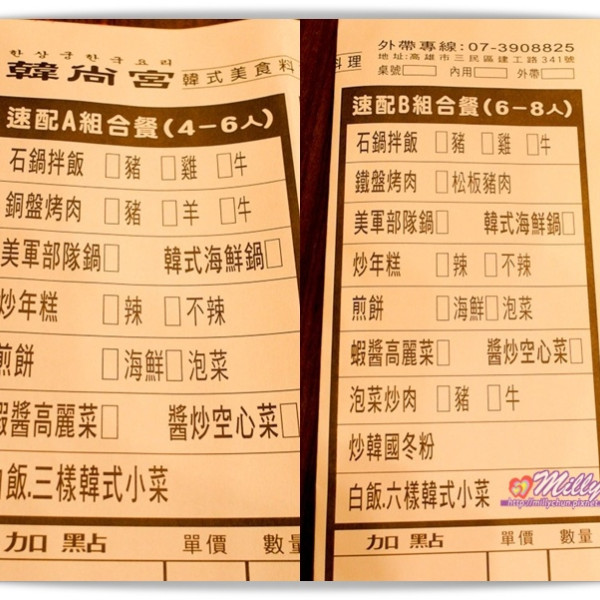 한상궁한국요리
韓尙宮 韓式美食料
速配A組合餐(4－6人)
石鍋拌飯 □豬 □雞 □牛
銅盤烤肉 □豬 □羊 □牛
美軍部隊鍋□ 韓式海鮮鍋□
炒年糕 □辣 □不辣
煎餅 □海鮮□泡菜
蝦醬高麗菜□ 醬炒空心菜□
白飯.三樣韓式小菜
加點 單價 數量
外帶專線:07-3908825
地址:高雄市三民區建工路341號
料理 桌號□ 內用□ 外帶□
速配B組合餐(6－8人)
石鍋拌飯 □豬 □雞 □牛
鐵盤烤肉 □松板豬肉
美軍部隊鍋□ 韓式海鮮鍋□
炒年糕 □辣 □不辣
煎餅 □海鮮□泡菜
蝦醬高麗菜□ 醬炒空心菜□
泡菜炒肉 □豬 □牛
炒韓國冬粉
白飯.六樣韓式小菜
加點 單價 數量
Milly
http://millychun.pixnet